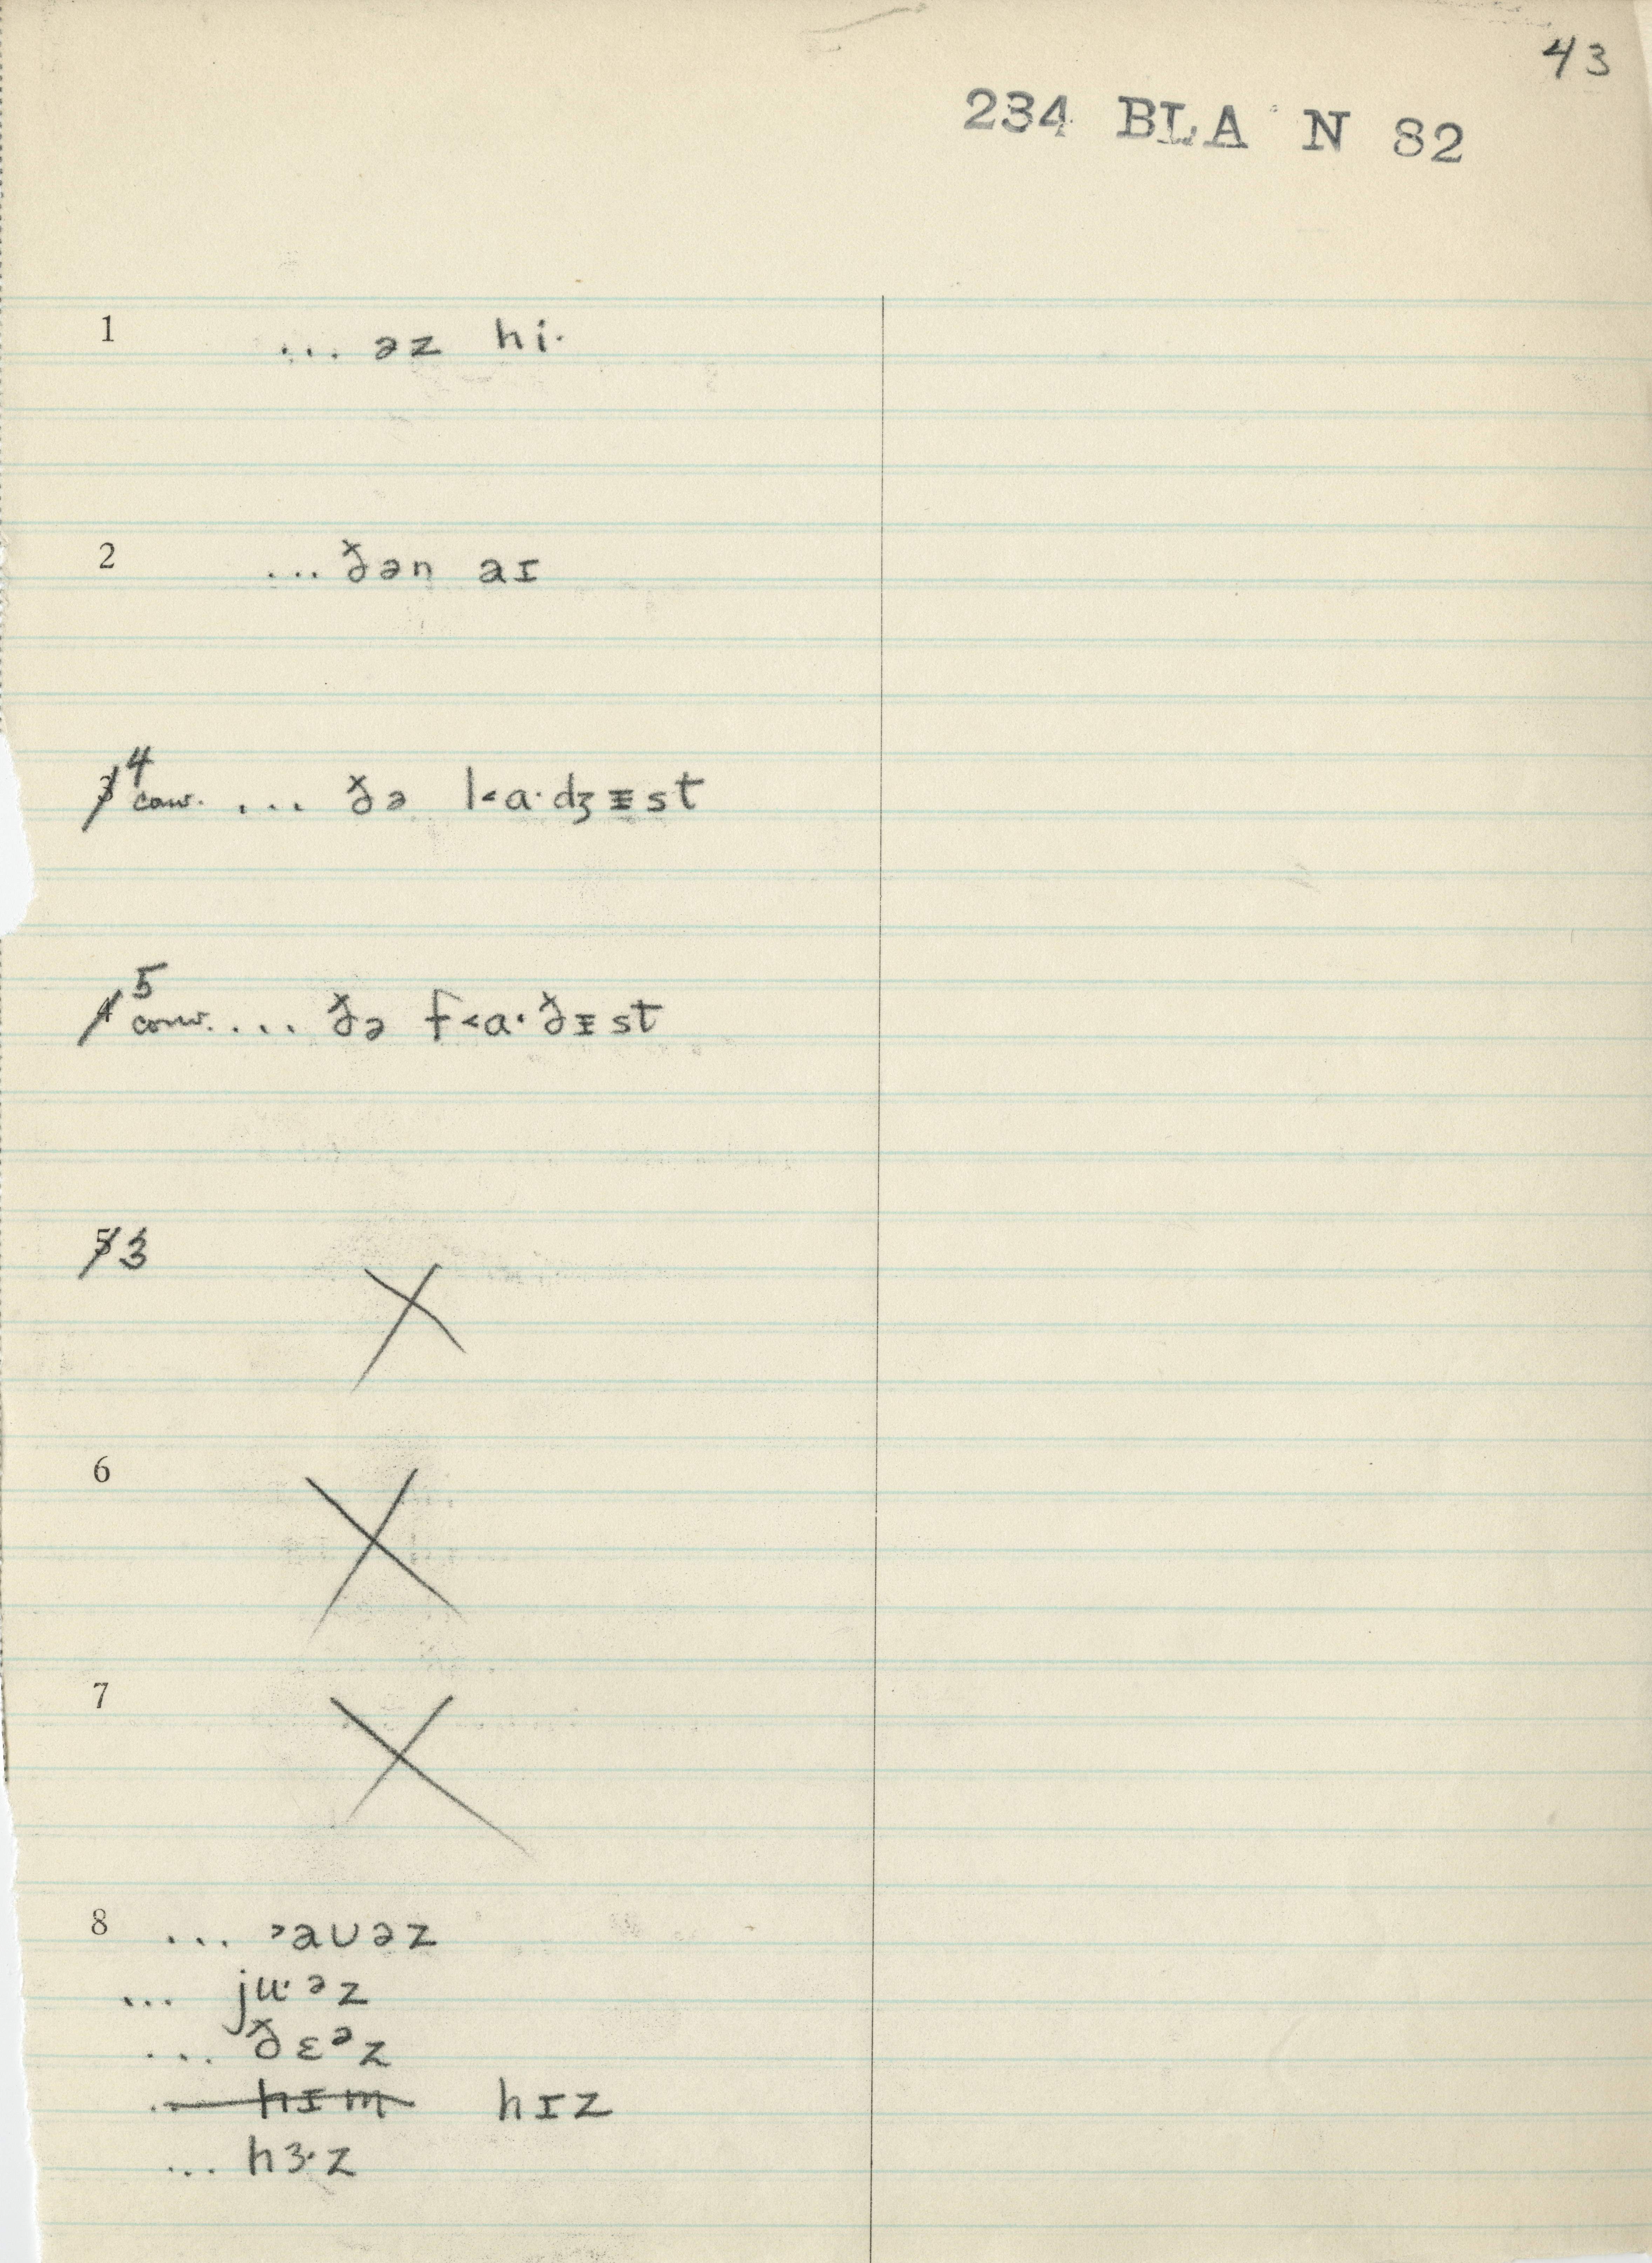 43
234 BLA N 82
1 ... əz hi·
2 ... ðən aɪ
3 4 conv. .... ðə l˂a·dʒɪ̵st
4 5 conv. .... ðə f˂a·ðɪ̵st
5 3
6
7
8 ... ˃aʊəz
... ju·əz
... ðɛᵊz
... hɪm hɪz
... hɜ·z